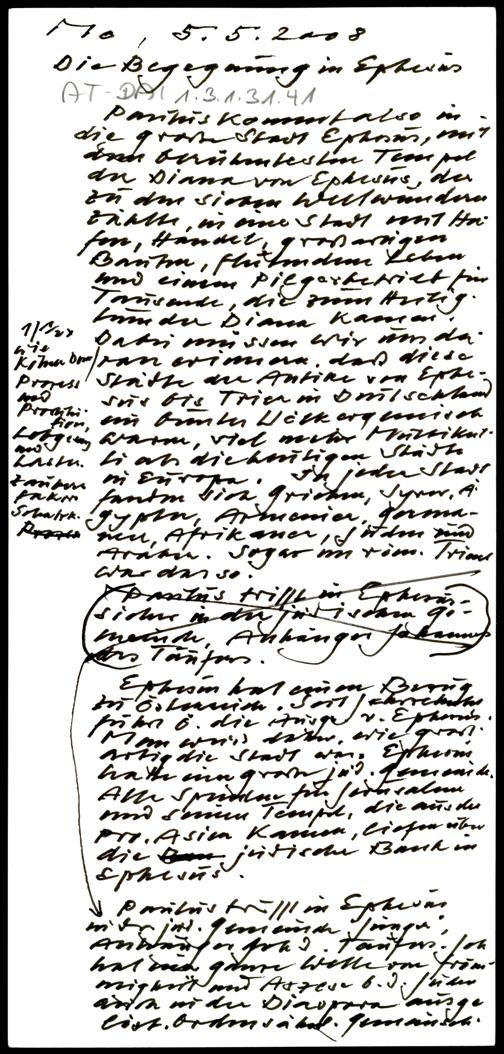 Mo, 5.5.2008
Die Begegnung in Ephesus
AT-DAI 1.3.1.31.41
Paulus kommt also in
die große Stadt Ephesus, mit
dem berühmtesten Tempel
der Diana von Ephesus, der
zu den sieben Weltwundern
zählte, in eine Stadt mit Ha-
fen, Handel, großartigen
Bauten, flutendem Leben
und einem Pilgerbetrieb für
Tausende, die zum Heilig-
tum der Diana kamen.
Dabei müssen wir uns da-
ran erinnern, daß diese
Städte der Antike von Ephe-
sus bis Trier in Deutschland
ein buntes Völkergemisch
waren, viel mehr Multikul-
ti als die heutigen Städte
in Europa. In jeder Stadt
fanden sich Griechen, Syrer, Ä-
gypter, Armenier, Germa-
nen, Afrikaner, Juden und
Araber. Sogar im röm. Trier
war das so.
wie
Kölner Dom
Prozess
und
Lobgesang
und
Laster
Zauberer
Paulus trifft in Ephesus
sicher in der jüdischen Ge-
meinde, Anhänger Johannes
des Täufers.
Ephesus hat einen Bezug
zu Österreich. Seit Jahrzehnten
führt Ö. die Ausgr. v. Ephesus.
Man weiß daher, wie groß-
artig die Stadt war. Ephesus
hatte eine große jüd. Gemeinde.
Alle Spenden für Jerusalem
und seinen Tempel, die aus der
Prov. Asien kamen, liefen über
die jüdische Bank in
Ephesus.
Paulus trifft in Ephesus
in der jüd. Gemeinde Jünger,
Anhänger Joh. d. Täufers. Joh
hat eine ganze Welle von Fröm-
migkeit und Aszese b. d. Juden
auch in der Diaspora ausge-
löst. Ordensähnl. Gemeinsch.